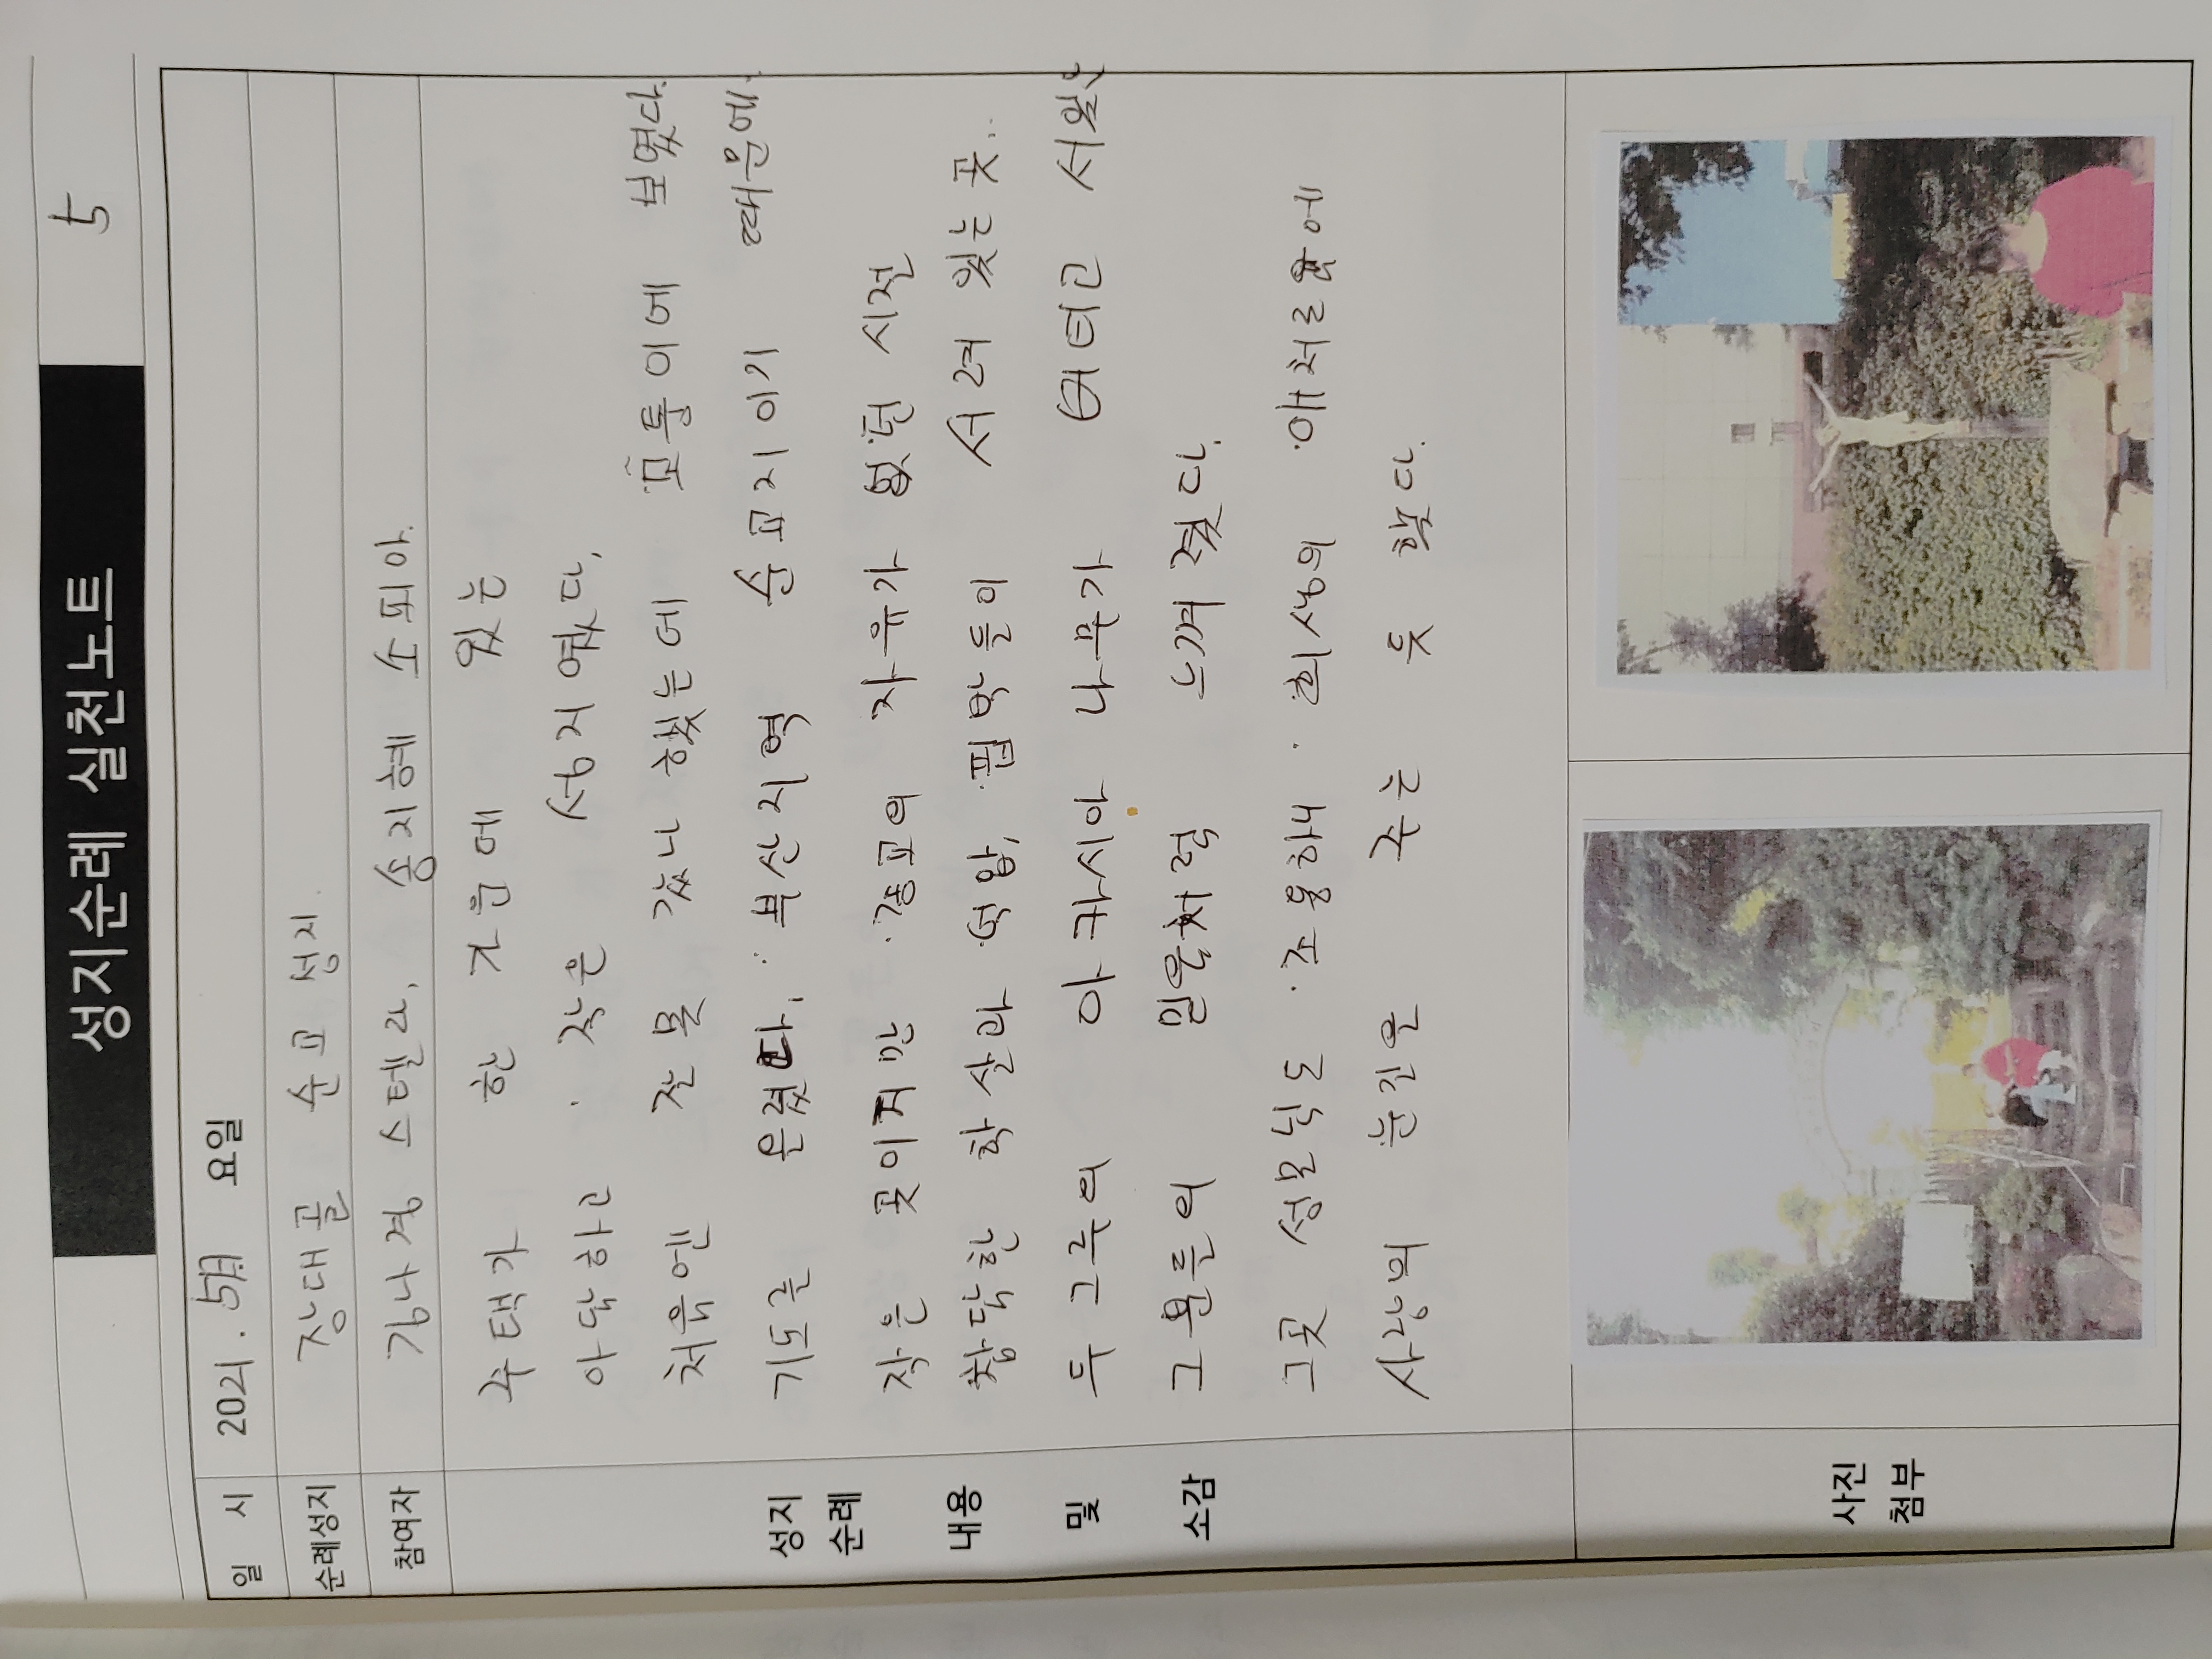 성지순례 실천노트
5
일 시 2021. 5月 요일
순례성지 장대골 순교 성지.
참여자 김나경 스텔라, 송지혜 소피아.
성지
순례
내용
및
소감
주택가 한 가운에 있는
아닥하고 작은 성지였다,
처음엔 잘못 갔나 했는데 모퉁이에 보였다.
기도를 올렸다, 부산지역 순교지이기 때문에
작은 곳이지만 종교의 자유가 없던 시전
참닥한 학살과 억압, 핍박들이 서려 있는 곳..
두 그루의 아카시아 나무가 버티고 서있는
그분들의 믿음처럼 느껴졌다.
그곳 성모님도 조용하니 희생의 애처로움에
사랑의 눈길을 주는 듯 했다.
사진
첨부